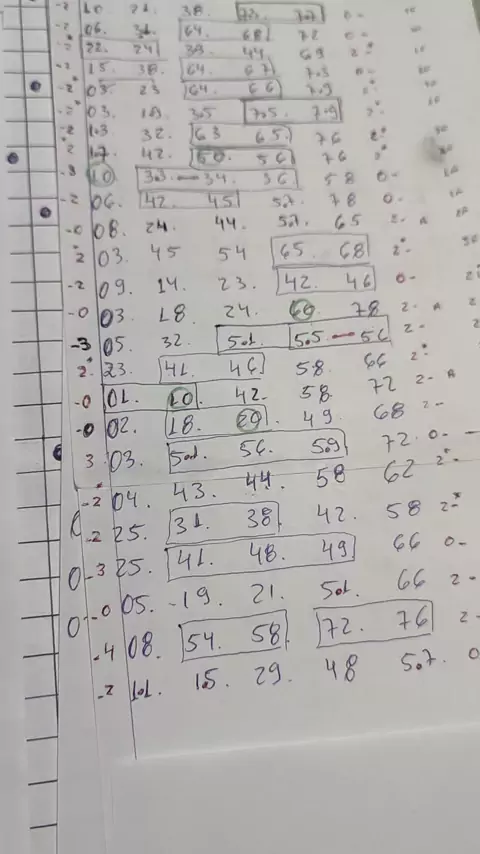 10 21. 38. 73. 77 0-
-2 06. 31. 64. 68 72 0-
-2 22. 24 39 44 69 2-
-2 15. 38. 64. 67 73 0-
-2 03. 23 64. 66 79 2-
-2 03. 19. 35 75. 79 2-
-2 13. 32. 63 65. 76 2-
2 17. 42. 50. 56 76 2-
-3 10 33-34. 36 58 0-
-2 06. 42. 45 57. 78 0-
-0 08. 24. 44. 57. 65 2- A
2 03. 45 54 65. 68 2-
-2 09. 14. 23. 42. 46 0-
-0 03. 18 24. 69 78 2- A
-3 05. 32 51. 55-56 2-
2 23. 41. 46 58 66 2-
-0 01. 10 42. 58 72 2- A
-0 02. 18. 20 49 68 2-
3 03. 51. 56. 59 72 0-
-2 04. 43. 44. 58 62 2-
-2 25. 31. 38 42. 58 2-
0-3 25. 41. 48. 49 66 0-
-0 05. 19. 21. 51. 66 2-
-4 08. 54. 58 72. 76 2-
-2 11. 15. 29. 48 57. 0